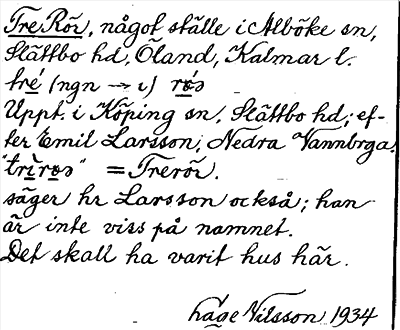 Tre Rör, något ställe i Alböke sn,
Slättbo hd, Öland, Kalmar l.
tré (ngn → ı) rǿs
Uppt. i Köping sn, Slättbo hd; ef-
ter Emil Larsson, Nedra Vannbrga.
"trìrøs" = Trerör.
säger hr Larsson också; han
är inte viss på namnet.
Det skall ha varit hus här.
Håge Nilsson 1934